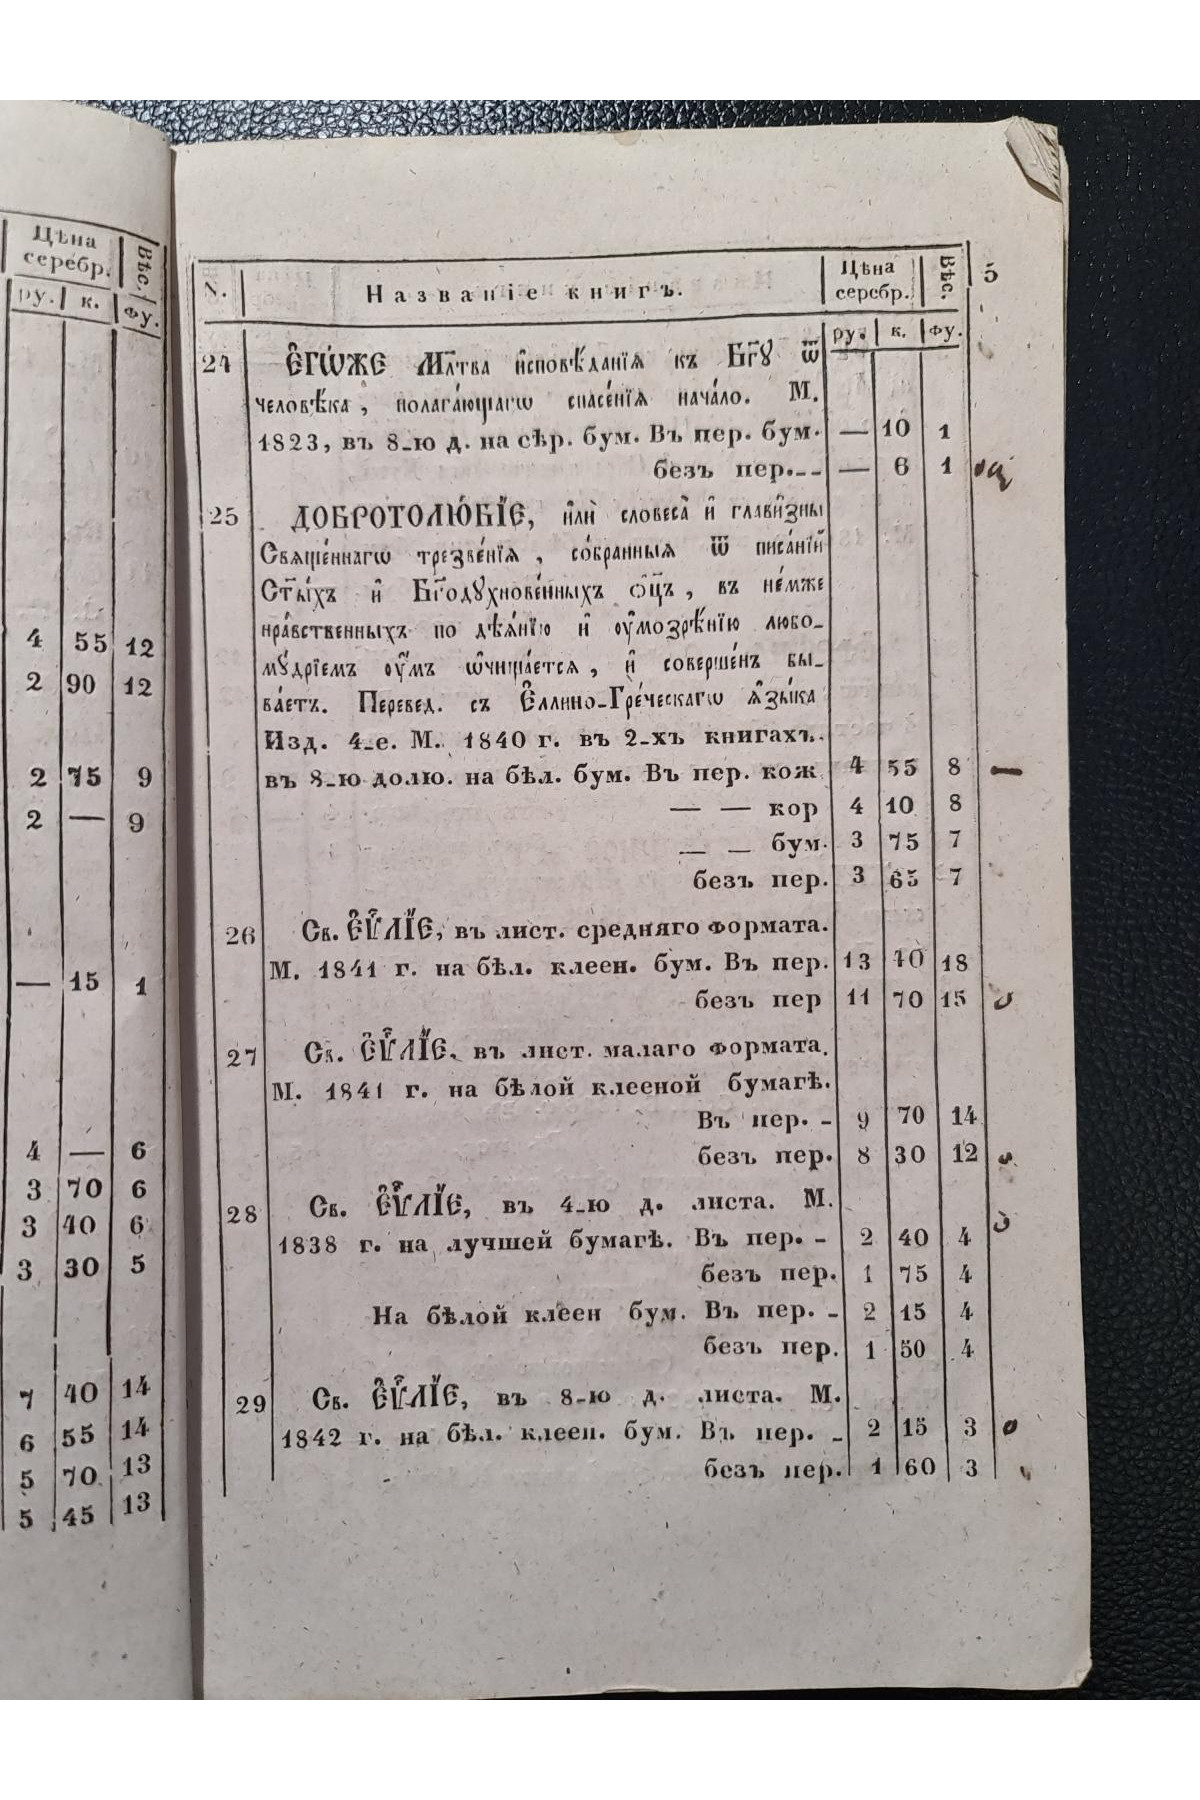 Цѣна
серебр.
Вѣс.
ру. к. Фу.
4 55 12
2 90 12
2 75 9
2 — 9
— 15 1
4 — 6
3 70 6
3 40 6
3 30 5
7 40 14
6 55 14
5 70 13
5 45 13
5
N. Названіе книгъ. Цѣна серебр. Вѣс.
ру. к. Фу.
24 Є҆ГѠ́ЖЕ Мл҃тва и҆сповѣ́данїѧ къ Бг҃ꙋ ѿ
человѣ́ка, полага́ющагѡ спасе́нїѧ нача́ло. М.
1823, въ 8-ю д. на сѣр. бум. Въ пер. бум. — 10 1
безъ пер.-- — 6 1
25 ДОБРОТОЛЮ́БЇЕ, и҆лѝ словеса̀ и҆ глави̑зны
Свѧще́ннагѡ трезве́нїѧ, со́бранныѧ ѿ писа́нїй
Ст҃ы́хъ и҆ Бг҃одꙋхнове́нныхъ ѻ҆ц҃ъ, въ не́мже
нра́вственныхъ по дѣѧ́нїю и҆ ᲂу҆мозрѣ́нїю любо-
мꙋ́дрїемъ ᲂу҆́мъ ѡ҆чища́етсѧ, и҆ соверше́нъ бы-
ва́етъ. Перевед. съ Є҆ллино-Гре́ческагѡ ѧ҆зы́ка
Изд. 4-е. М. 1840 г. въ 2-хъ книгахъ.
въ 8-ю долю. на бѣл. бум. Въ пер. кож 4 55 8
— — кор 4 10 8
— — бум. 3 75 7
безъ пер. 3 65 7
26 Св. Є҆Ѵⷢ҇ЛЇЕ, въ лист. средняго формата.
М. 1841 г. на бѣл. клеен. бум. Въ пер. 13 40 18
безъ пер 11 70 15
27 Св. Є҆Ѵⷢ҇ЛЇЕ, въ лист. малаго формата.
М. 1841 г. на бѣлой клееной бумагѣ.
Въ пер. - 9 70 14
безъ пер. 8 30 12
28 Св. Є҆Ѵⷢ҇ЛЇЕ, въ 4-ю д. листа. М.
1838 г. на лучшей бумагѣ. Въ пер. - 2 40 4
безъ пер. 1 75 4
На бѣлой клеен бум. Въ пер. - 2 15 4
безъ пер. 1 50 4
29 Св. Є҆Ѵⷢ҇ЛЇЕ, въ 8-ю д. листа. М.
1842 г. на бѣл. клеен. бум. Въ пер. - 2 15 3
безъ пер. 1 60 3